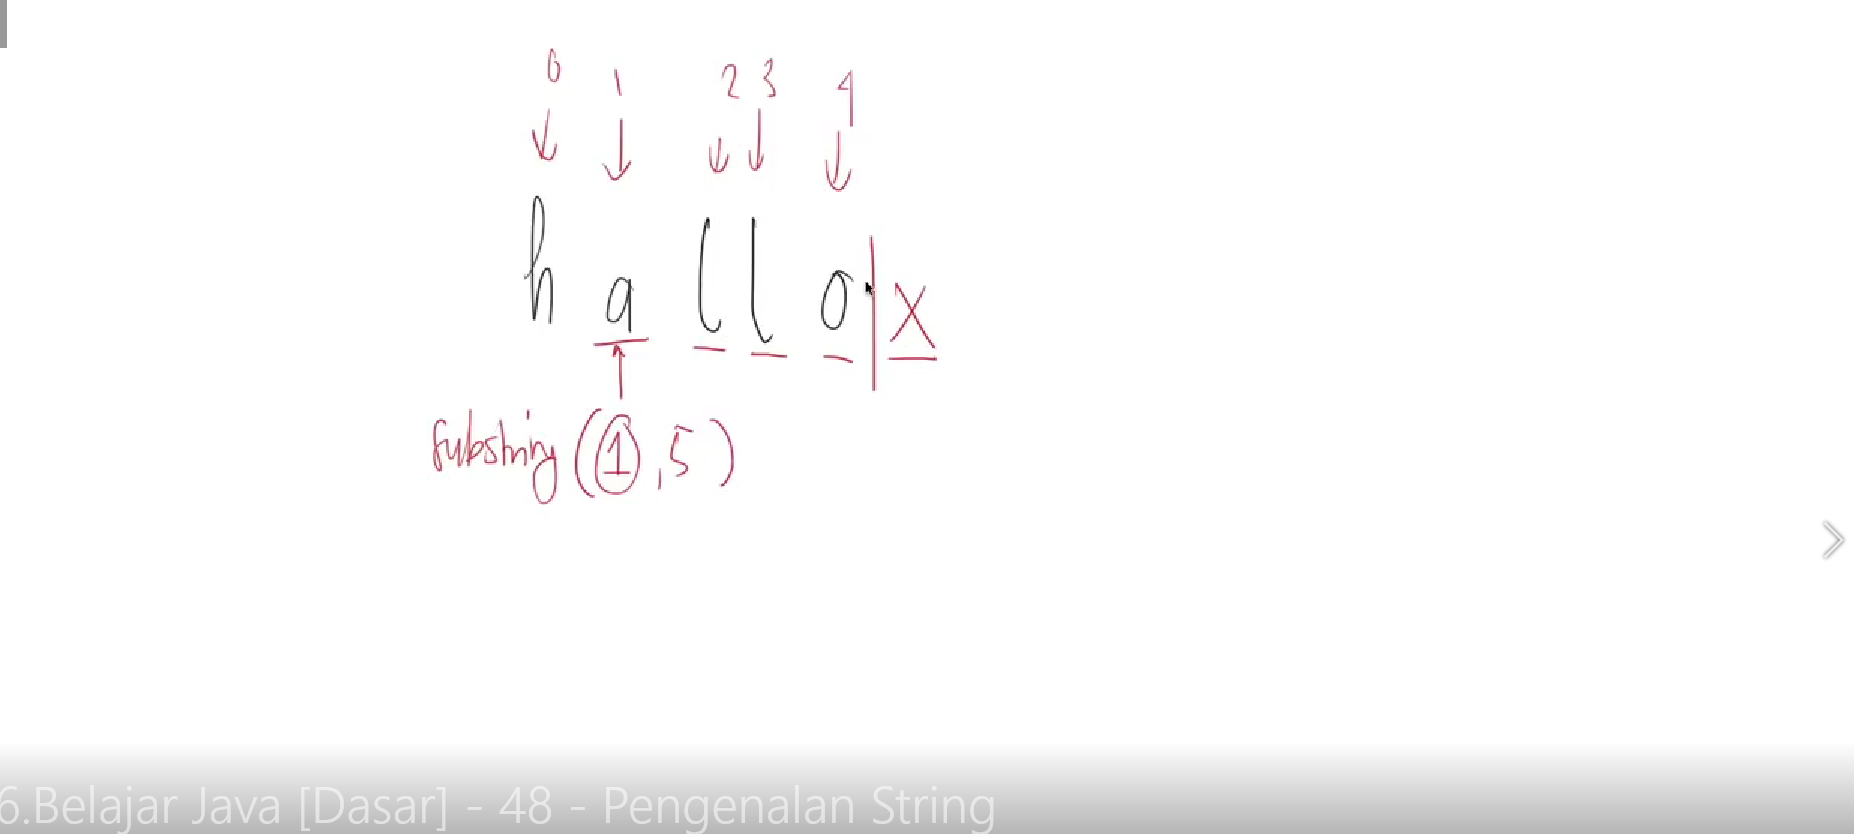 0 1 2 3 4
h a l l o | x
substring (1, 5)
6.Belajar Java [Dasar] - 48 - Pengenalan String